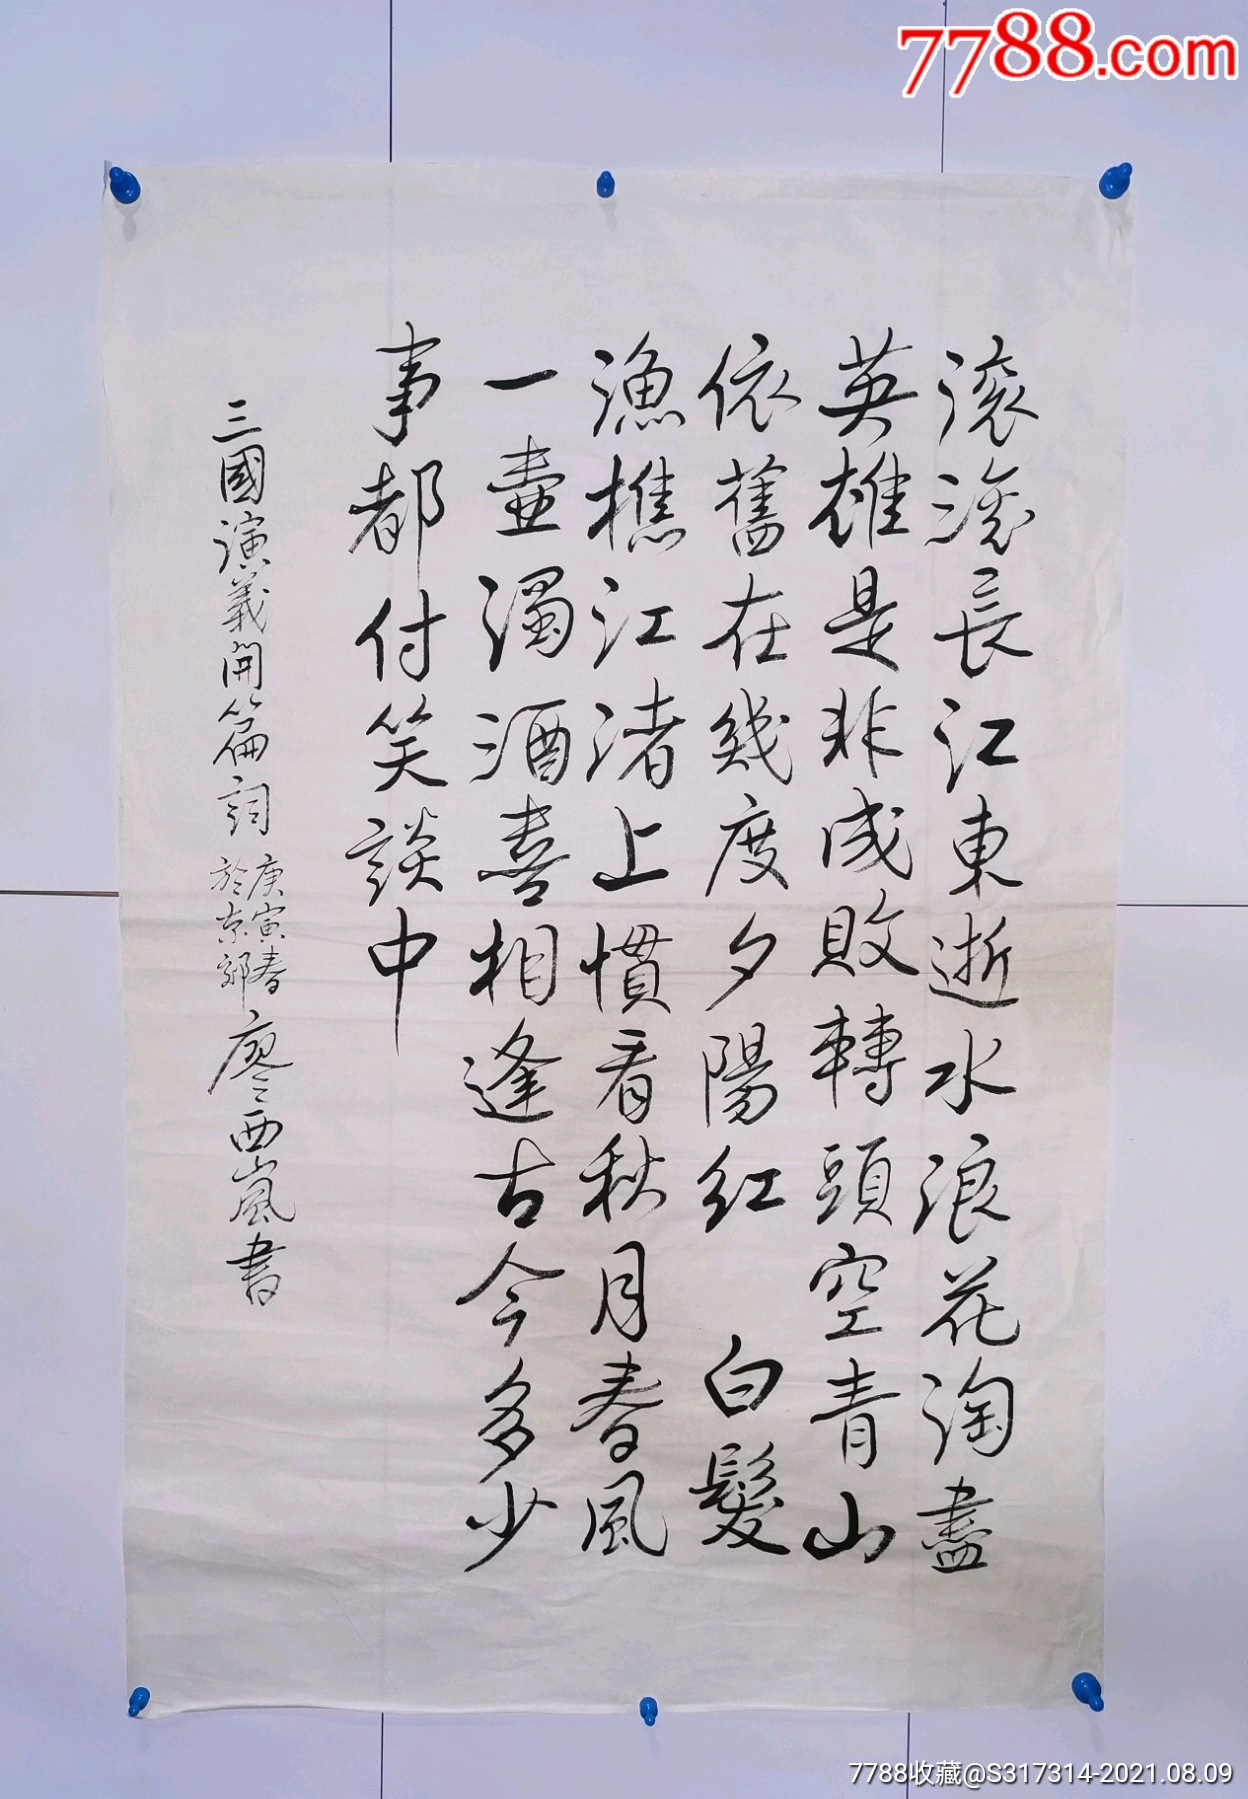 7788.com
滚滚長江東逝水浪花淘盡
英雄是非成敗轉頭空青山
依舊在幾度夕陽紅 白髮
漁樵江渚上慣看秋月春風
一壺濁酒喜相逢古今多少
事都付笑談中
三國演義開篇詞
庚寅春
於京郊
廖西嵐書
7788收藏@S317314-2021.08.09